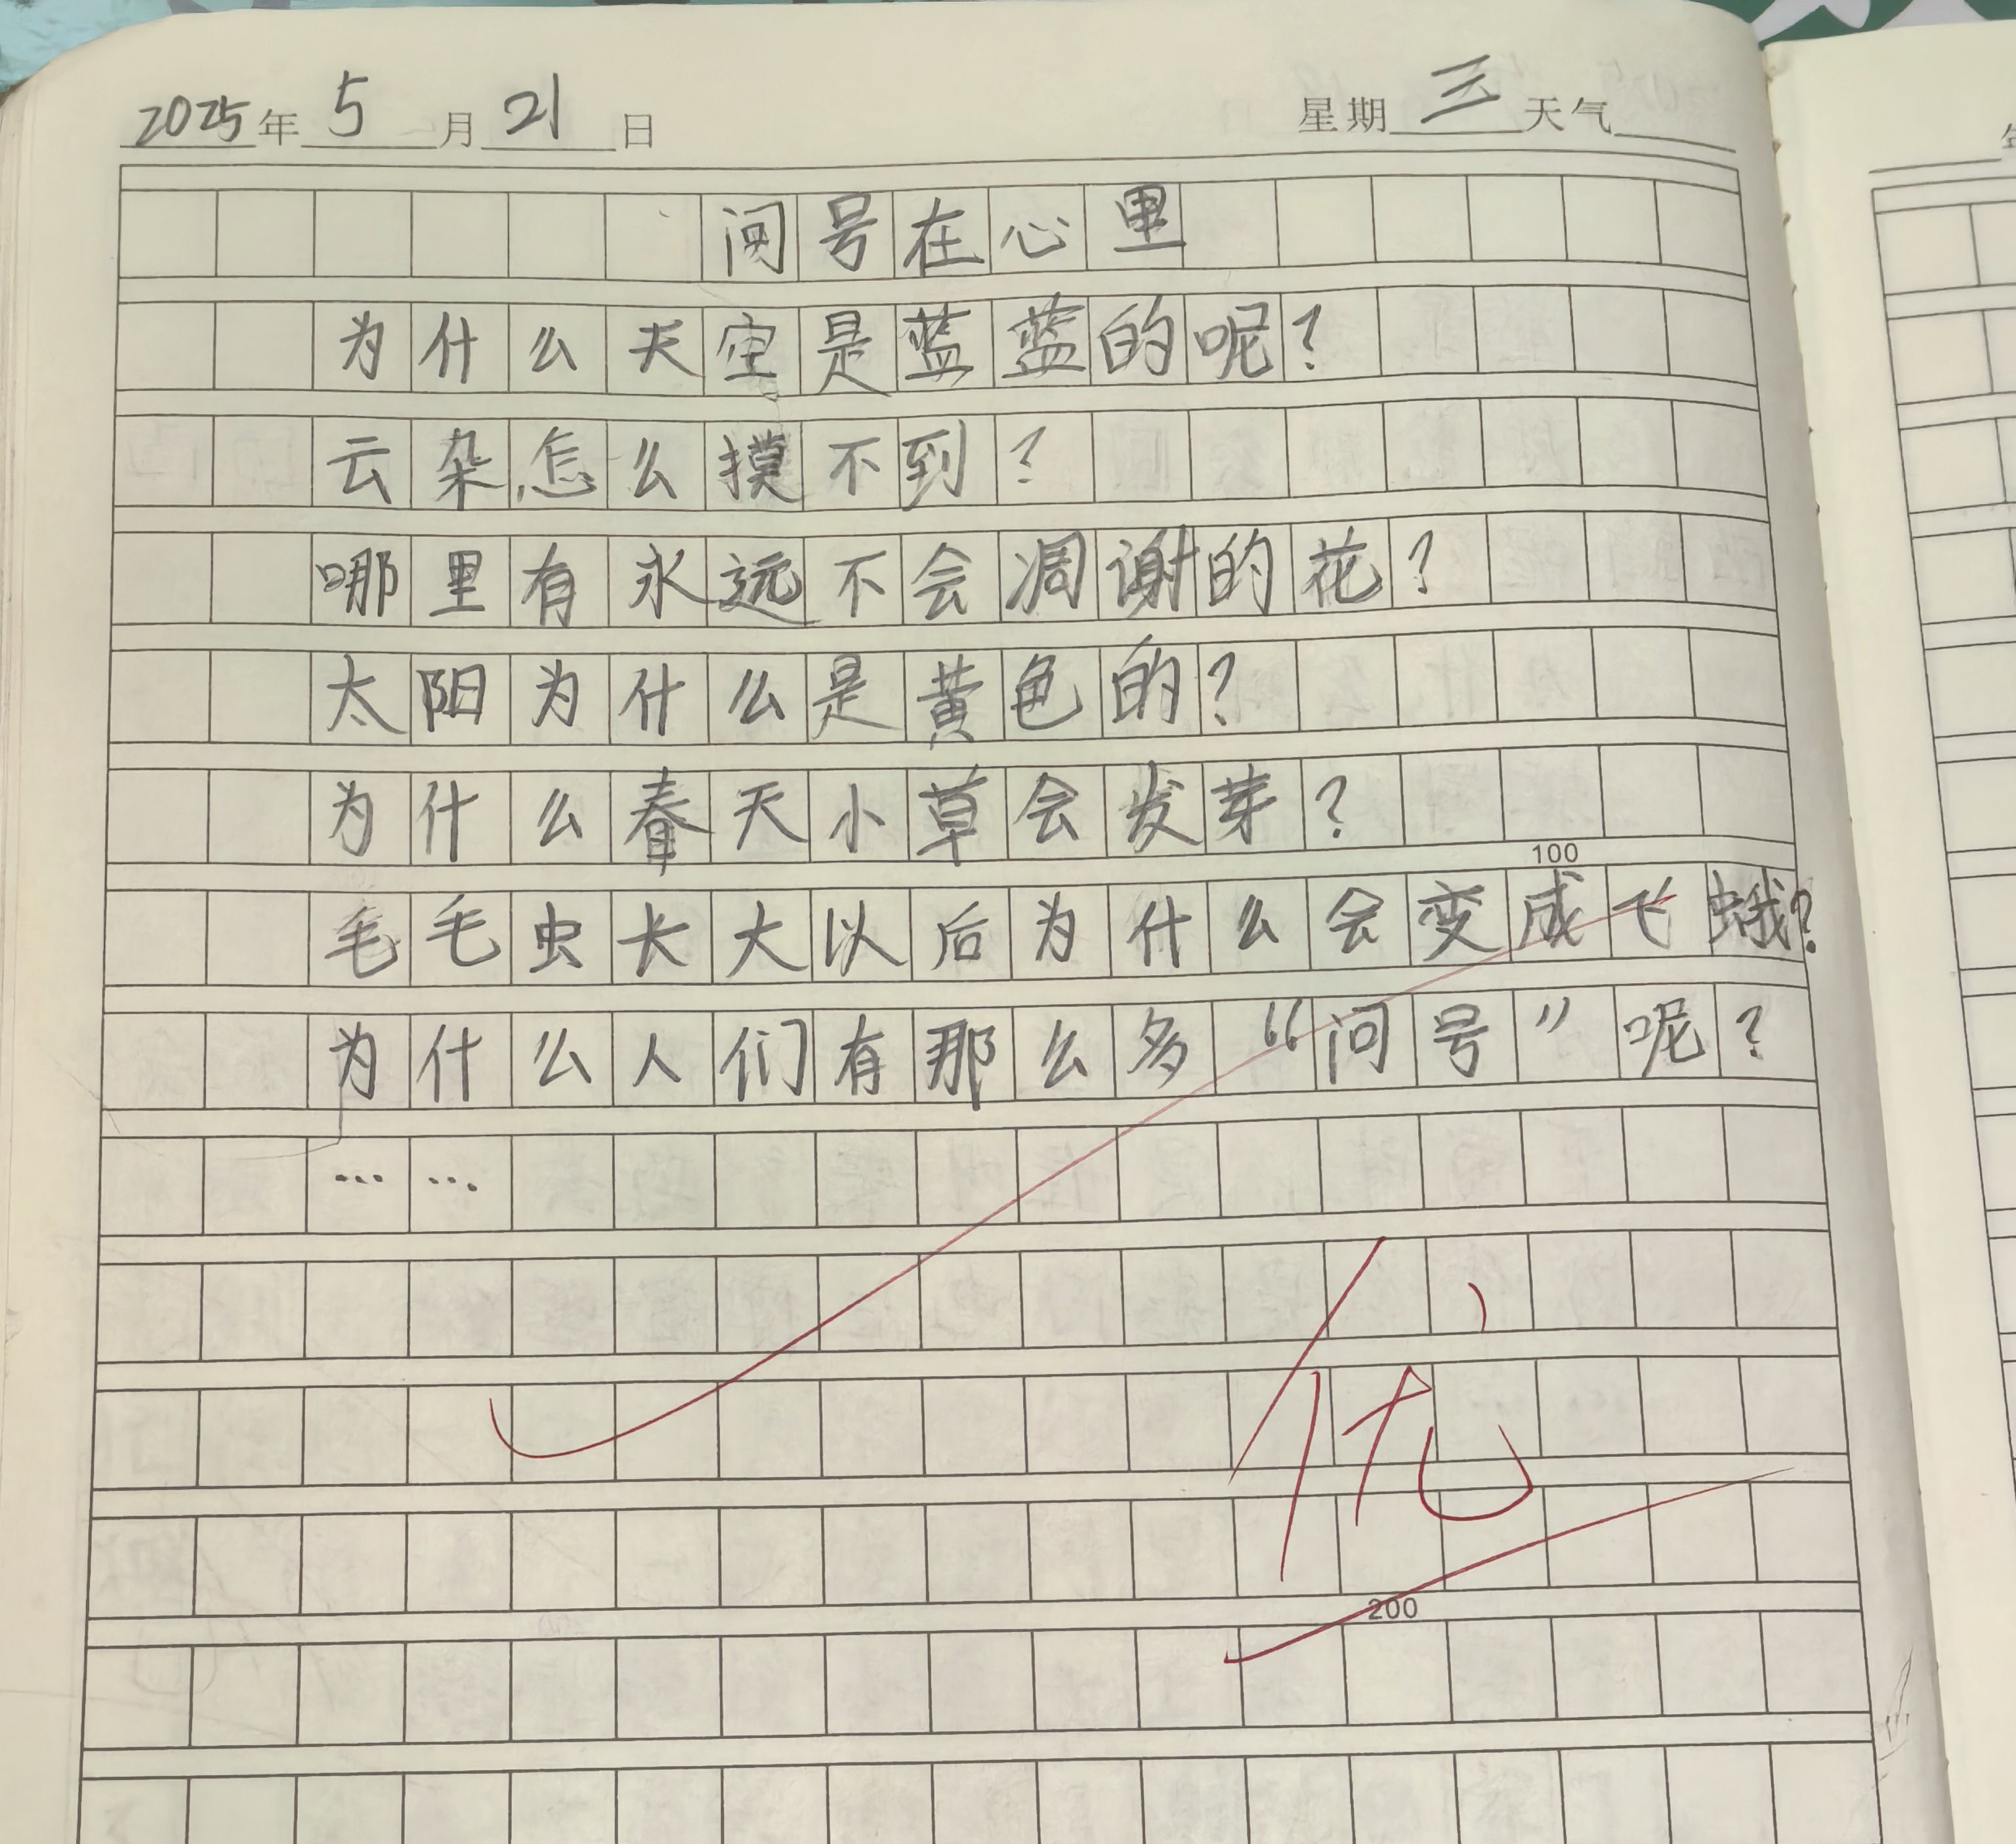 2025年5月21日 星期三天气
问号在心里
为什么天空是蓝蓝的呢?
云朵怎么摸不到?
哪里有永远不会凋谢的花?
太阳为什么是黄色的?
为什么春天小草会发芽?
100
毛毛虫长大以后为什么会变成飞蛾?
为什么人们有那么多“问号”呢?
……
优
200